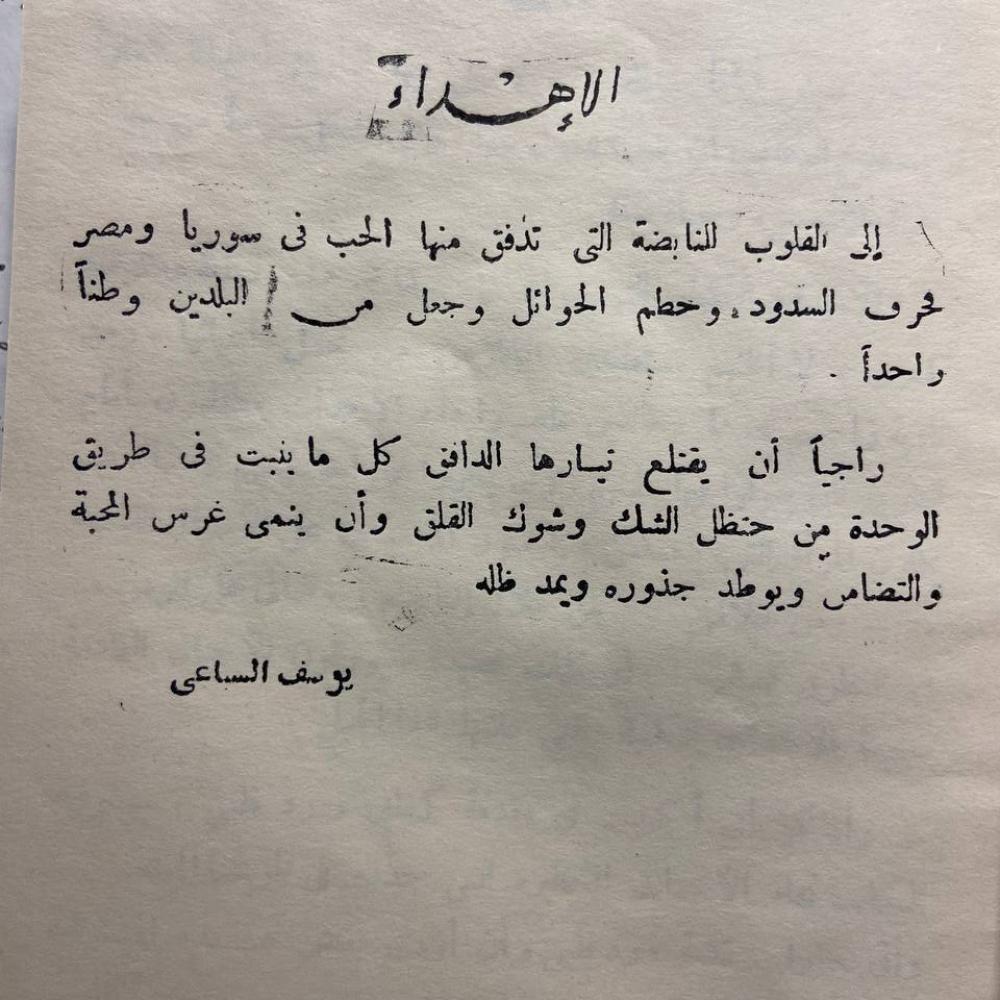 الإهداء
إلى القلوب النابضة التى تدفق منها الحب فى سوريا ومصر
فجرف السدود، وحطم الحوائل وجعل من البلدين وطناً
واحداً .
راجياً أن يقتلع تيارها الدافق كل ما ينبت فى طريق
الوحدة من حنظل الشك وشوك القلق وأن ينمى غرس المحبة
والتضامن ويوطد جذوره ويمد ظله
يوسف السباعى